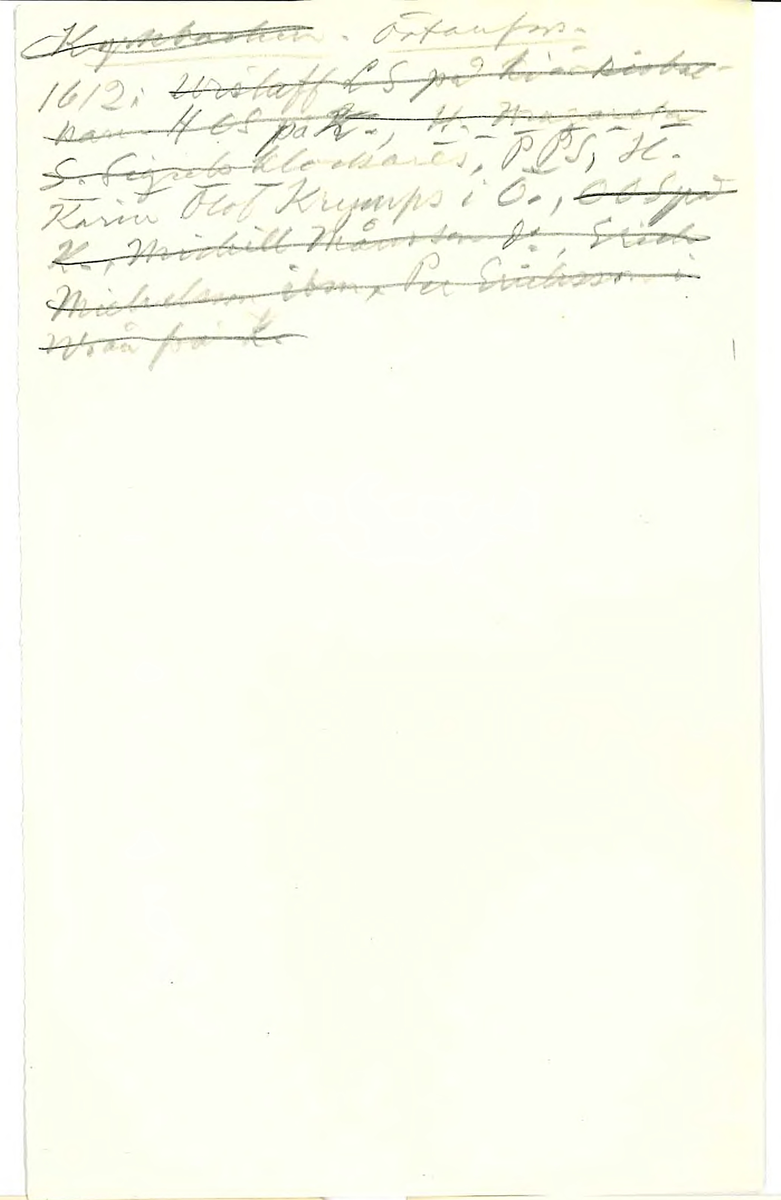 Kyrkbacken. Östanfors.
1612: Wristaff L S på
H OS på K., H. Margareta
S. Sigrids klockares, P PS, H.
Karin Olof Krymps i Ö., O O S på
K., Mickill Månsson D:, Erich
Michelsson ibm, Per Ericksson i
Wrån på K.